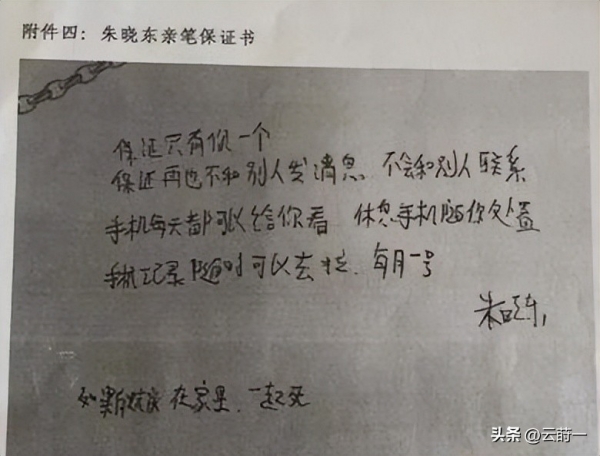 附件四：朱晓东亲笔保证书
保证只有你一个
保证再也不和别人发消息 不会和别人联系
手机每天都可以给你看 休息手机随你处置
手机记录随时可以去拉．每月一号
朱晓东
如果 在家里．一起死
头条 @云莳一